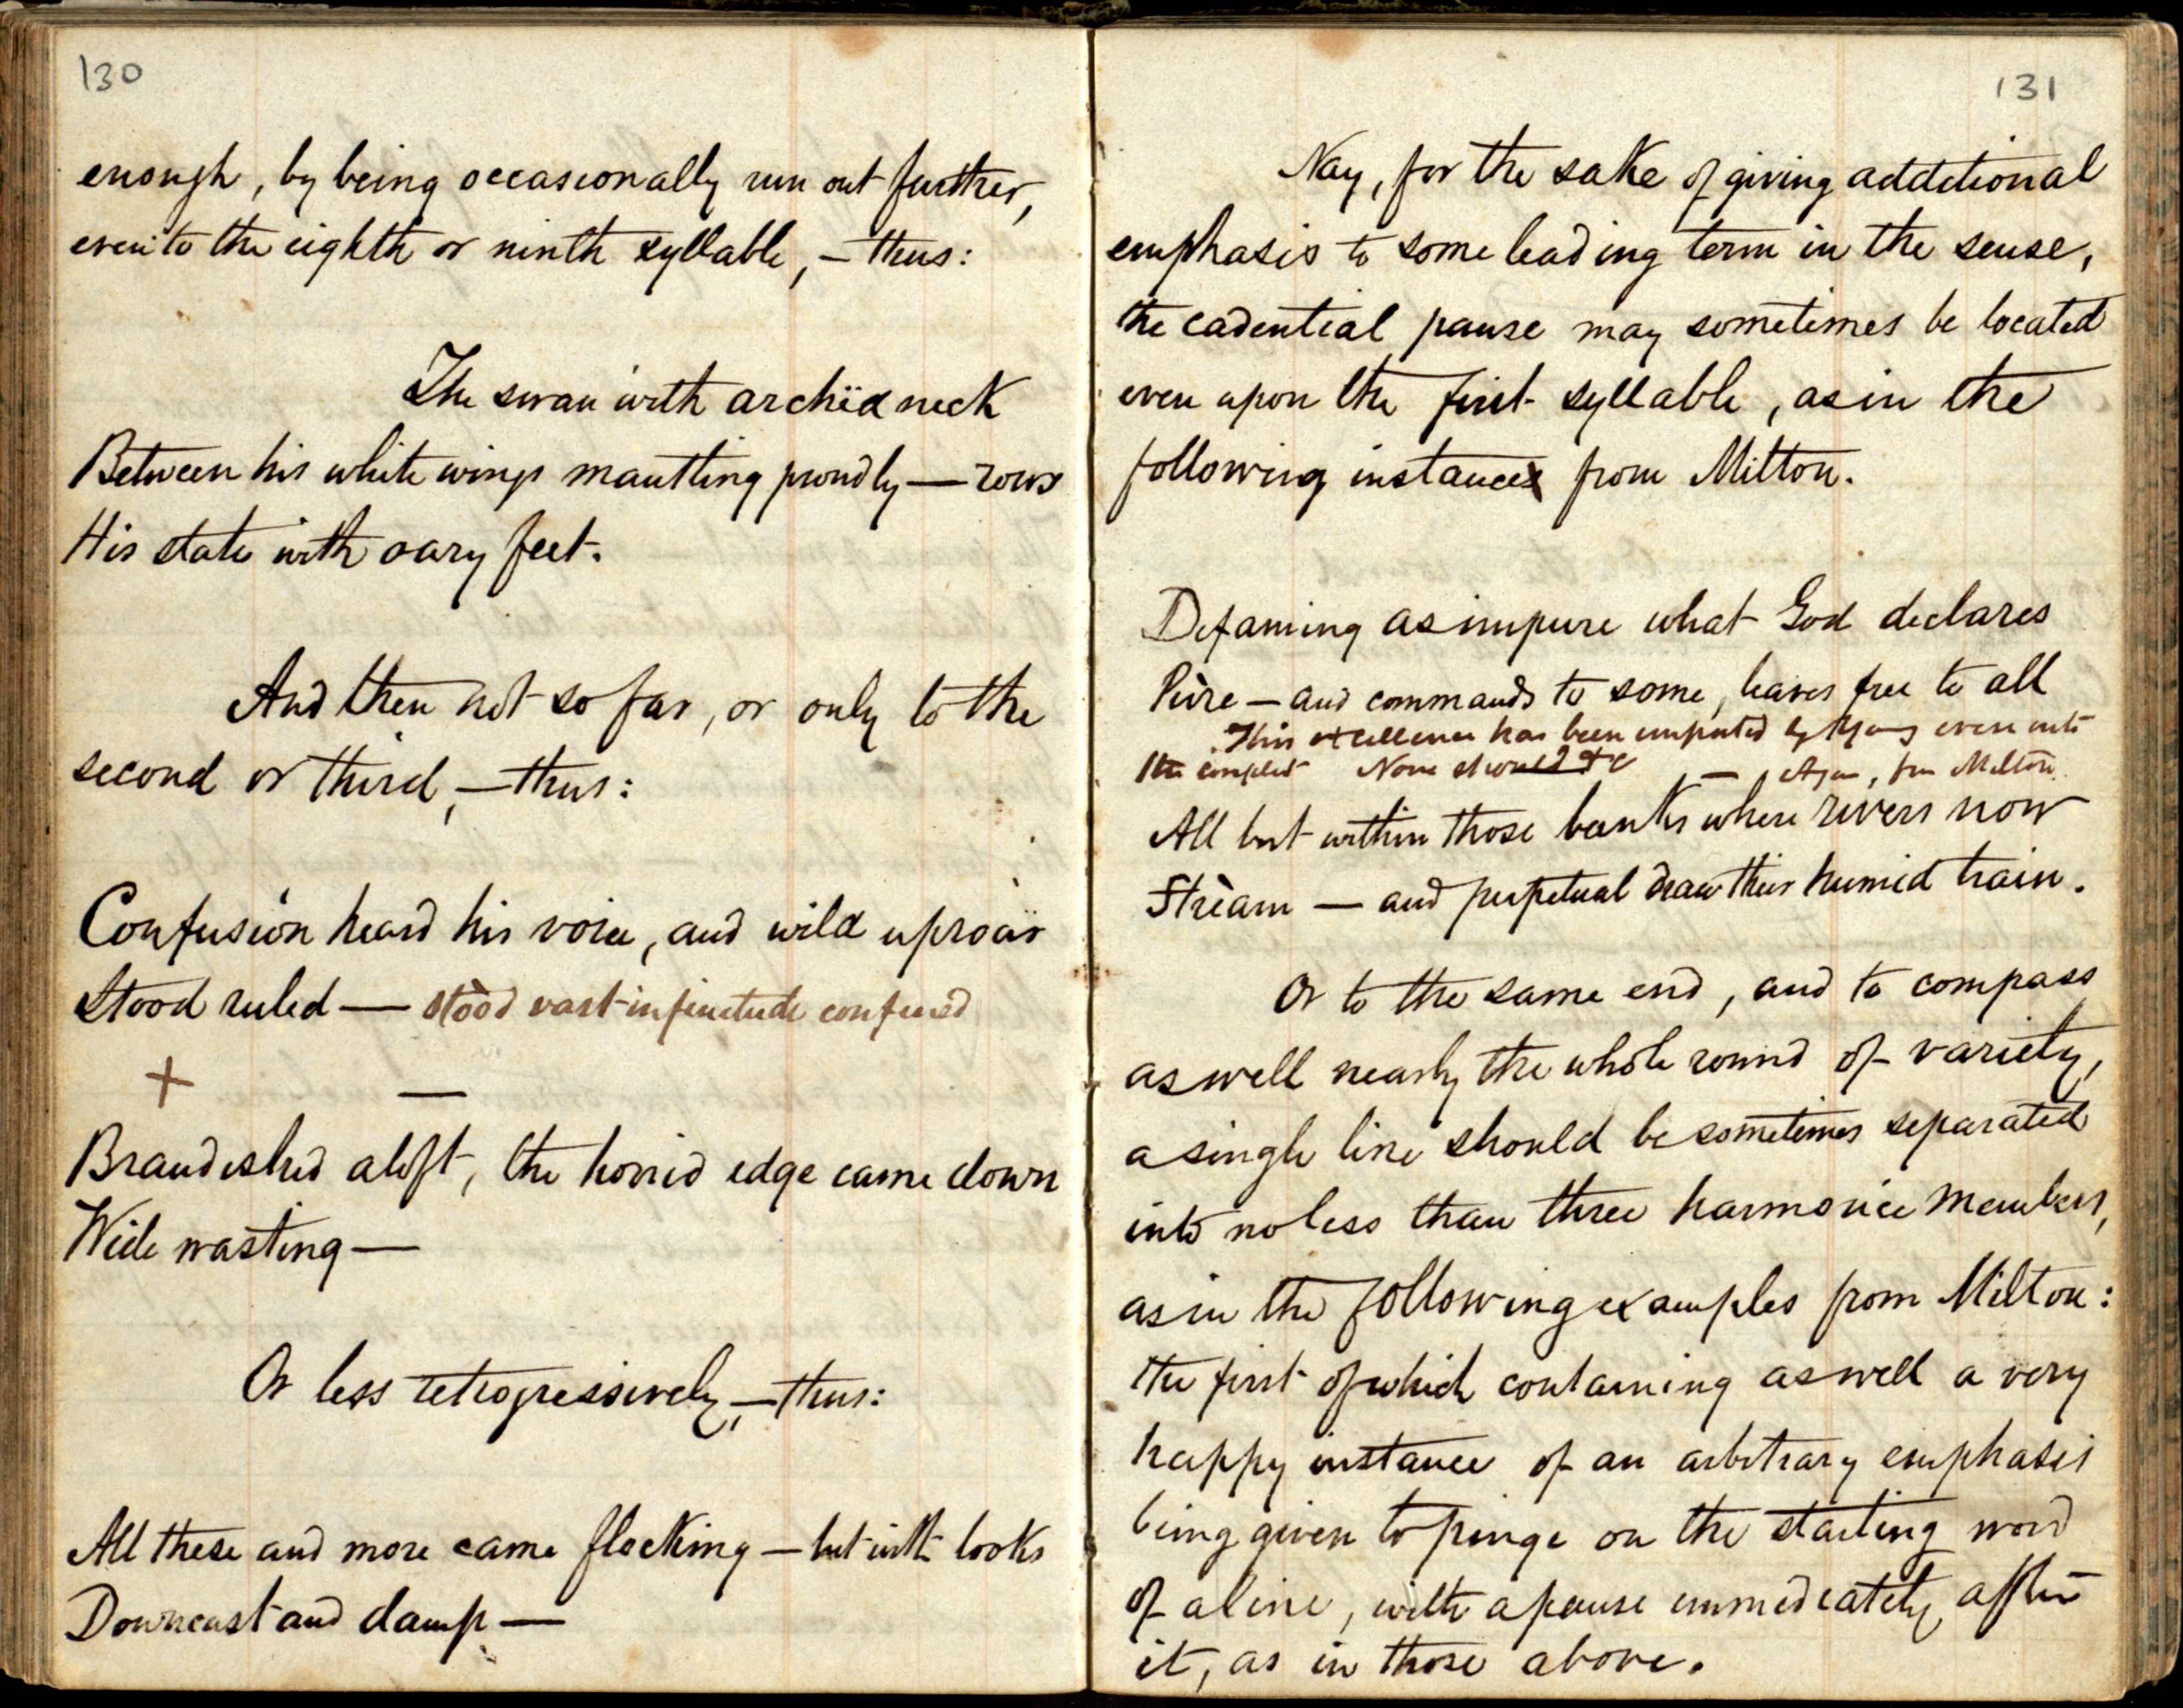 130
enough, by being occasionally run out further,
even to the eighth or ninth syllable, — thus:
The swan with archëd neck
Between his white wings mantling proudly — rows
His state with oary feet.
And then not so far, or only to the
second or third, — thus:
Confusion heard his voice, and wild uproar
Stood ruled — stood vast infinitude confined
+
—
Brandished aloft, the horrid edge came down
Wide wasting —
Or less retrogressively, — thus:
All these and more came flocking — but with looks
Downcast and damp —
131
Nay, for the sake of giving additional
emphasis to some leading term in the sense,
the cadential pause may sometimes be located
even upon the first syllable, as in the
following instances from Milton.
Defaming as impure what God declares
Pùre — and commands to some, leaves free to all
This excellence has been imported by Young even into
the couplet None should &c — Again, from Milton
All but within those banks where rivers now
Strèam — and perpetual draw their humid train.
Or to the same end, and to compass
as well nearly the whole round of variety,
a single line should be sometimes separated
into no less than three harmonic members,
as in the following examples from Milton:
the first of which containing as well a very
happy instance of an arbitrary emphasis
being given to hinge on the starting word
of a line, with a pause immediately after
it, as in those above.